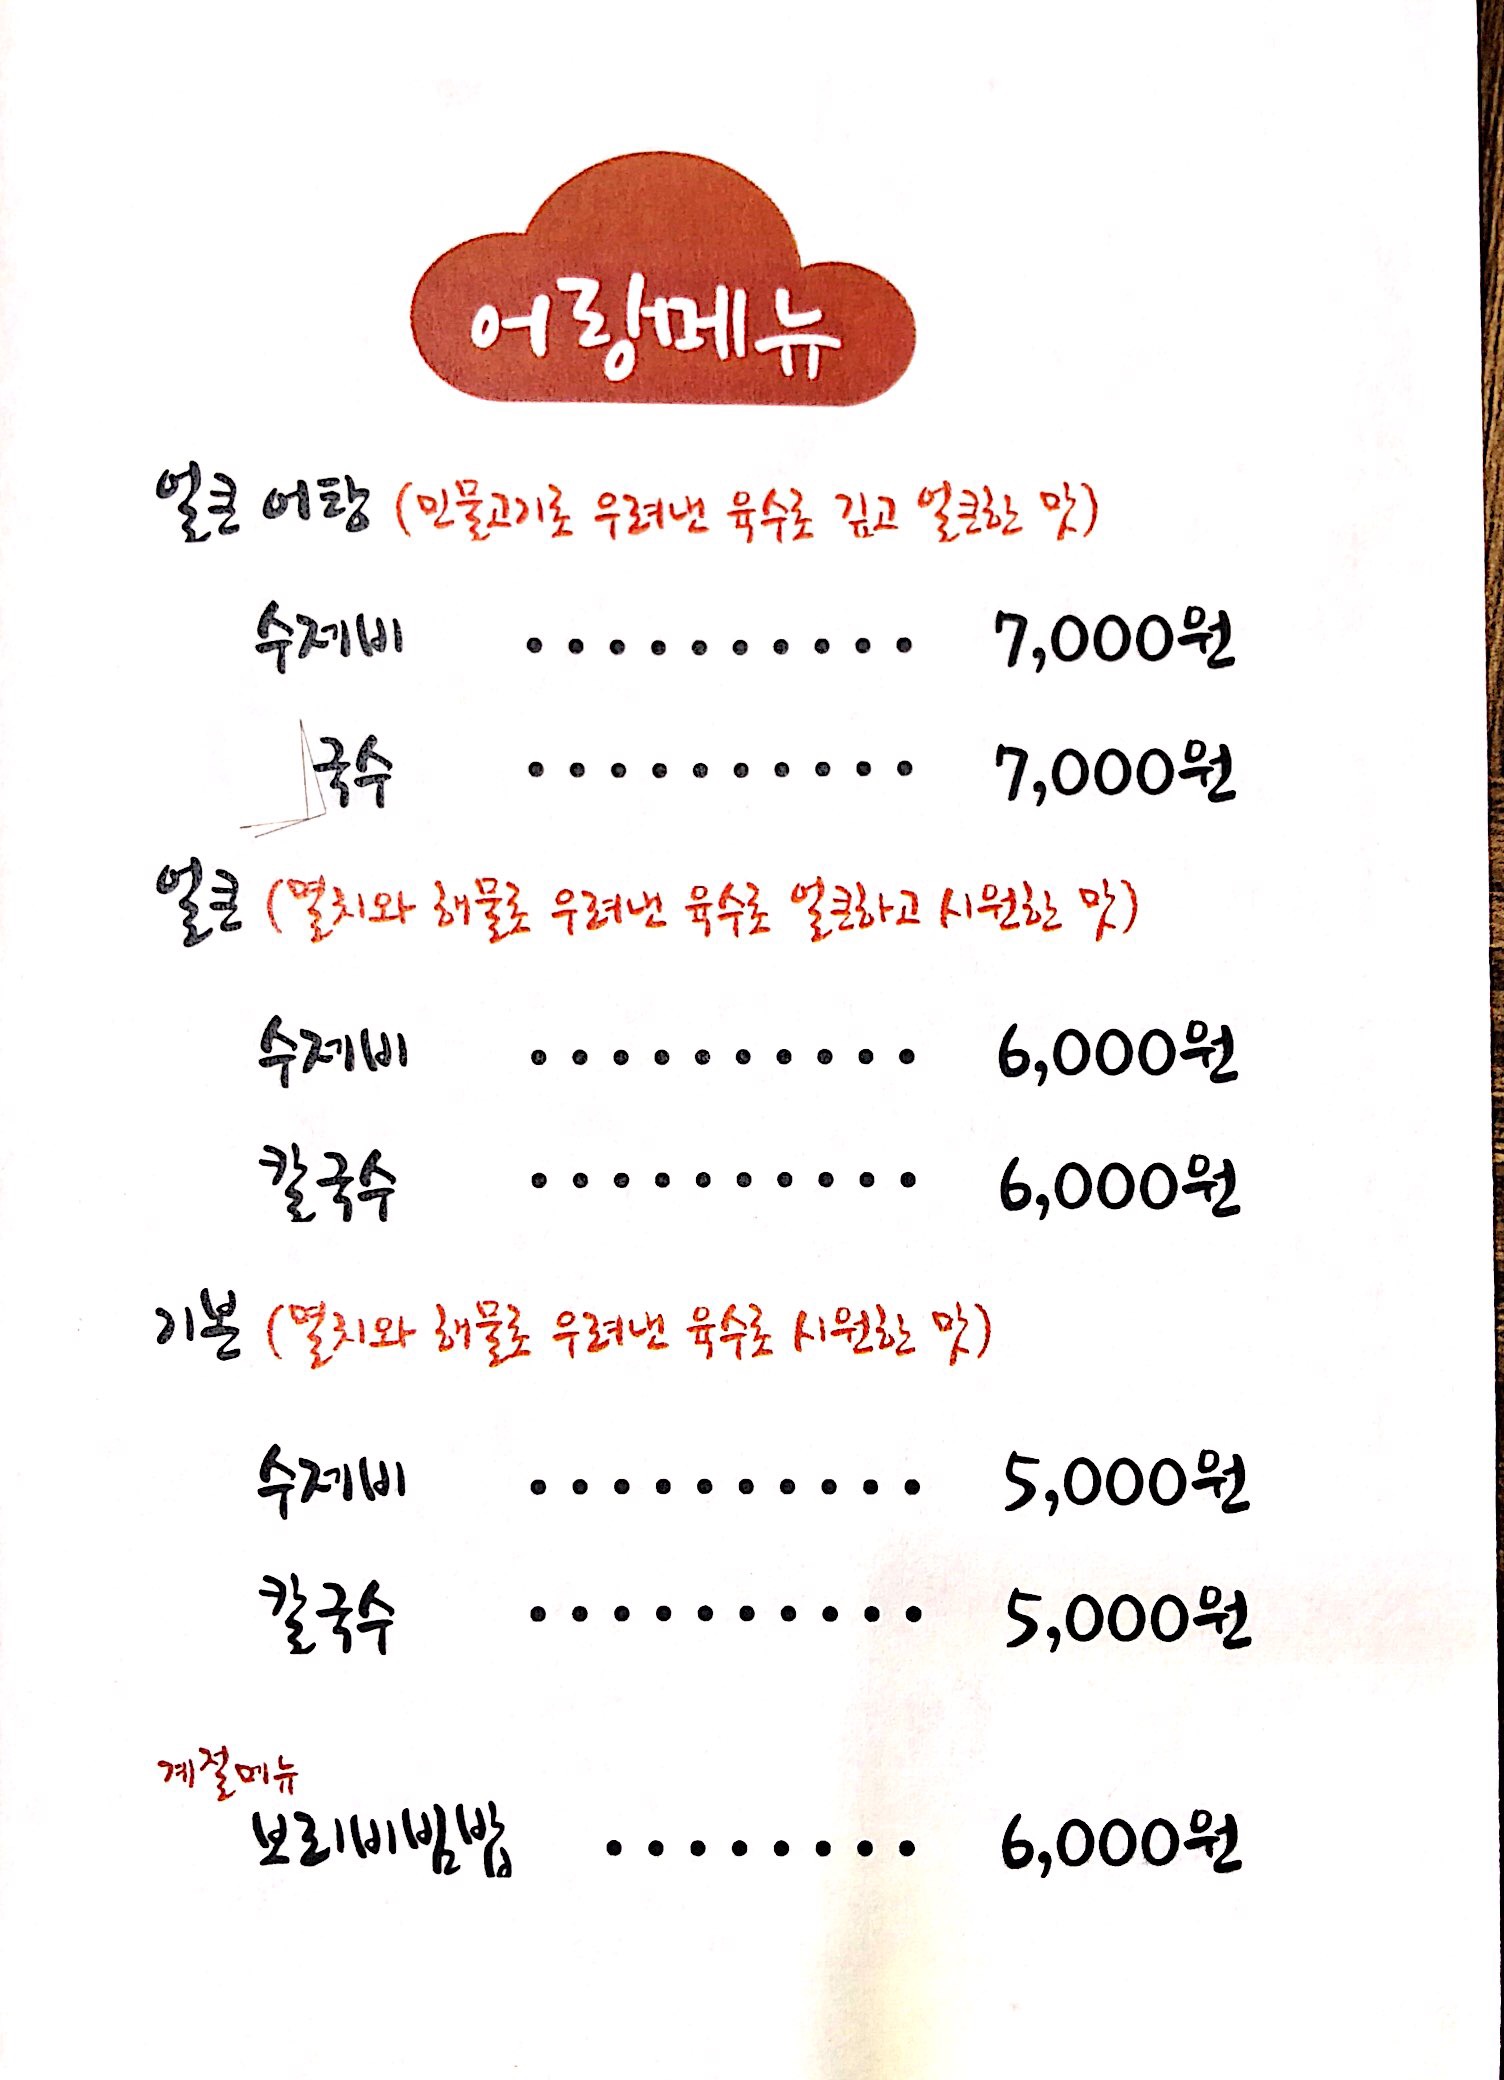 어랑메뉴
얼큰 어탕 (민물고기로 우려낸 육수로 깊고 얼큰한 맛)
수제비 · · · · · · · · · · 7,000원
국수 · · · · · · · · · · 7,000원
얼큰 (멸치와 해물로 우려낸 육수로 얼큰하고 시원한 맛)
수제비 · · · · · · · · · · 6,000원
칼국수 · · · · · · · · · · 6,000원
기본 (멸치와 해물로 우려낸 육수로 시원한 맛)
수제비 · · · · · · · · · · 5,000원
칼국수 · · · · · · · · · · 5,000원
계절메뉴
보리비빔밥 · · · · · · · · 6,000원